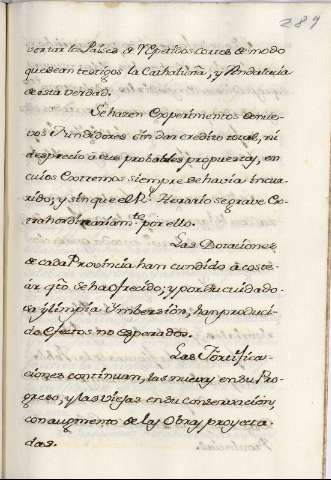 289
vertar los Países de Repetidos cortes de modo
que sean testigos la Cathaluña, y Andalucia
de esta verdad.
Se hazen Experimentos de nue-
vos Fundidores sin dar credito total, ni
desprecio à sus probables propuestas, en
cuios Extremos siempre se havia incur-
rido; y sin que el Rl. Herario se grave Ex-
trahordinariamte. por ello.
Las Dotaciones
de cada Provincia han cundido à coste-
ár qto. se ha ofrecido; y por su cuidado-
sa y limpia Ymbersion, han produci-
do efectos no esperados.
Las Fortifica-
ciones continuan, las nuevas en su Pro-
greso, y las viejas en su conservacion,
con augmento de las Obras proyecta-
das.